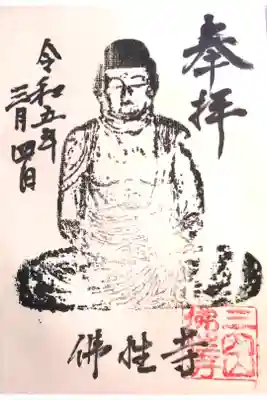 奉拝
佛性寺
令和五年
三月四日
佛性寺